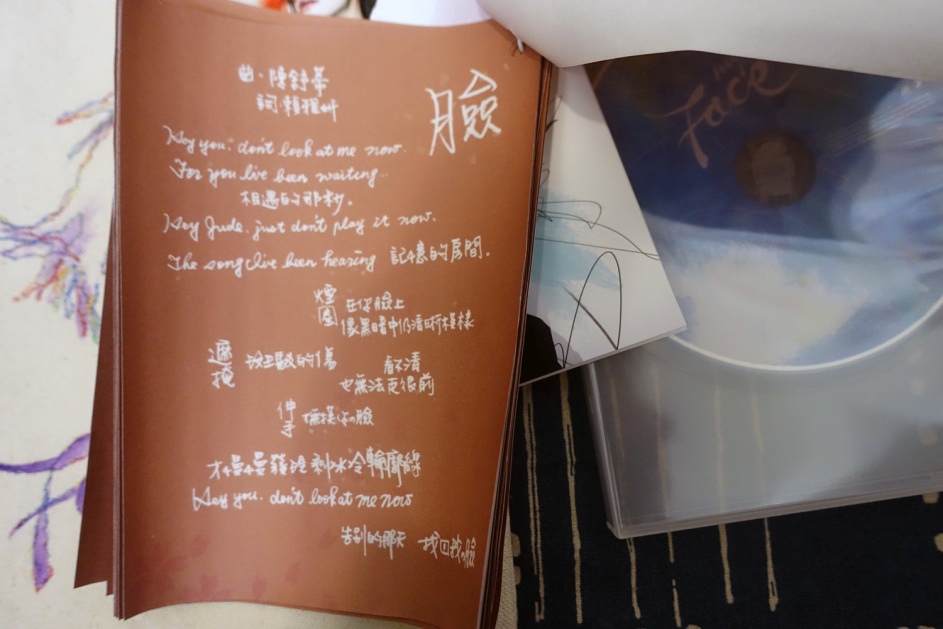 臉
曲、陳舒華
詞 賴雅妍
Hey you. don't look at me now.
For you I've been waiting
相遇的那秒。
Hey Jude. just don't play it now.
The song I've been hearing 記憶的房間.
煙圈 在你臉上
像黑暗中仍清晰模樣
遮掩 斑駁的傷 看不清
也無法更從前
伸手 撫摸你の臉
才慢慢發決 剩冰冷輪廓線
Hey you. don't look at me now
告別的那天 找回我の臉
Face